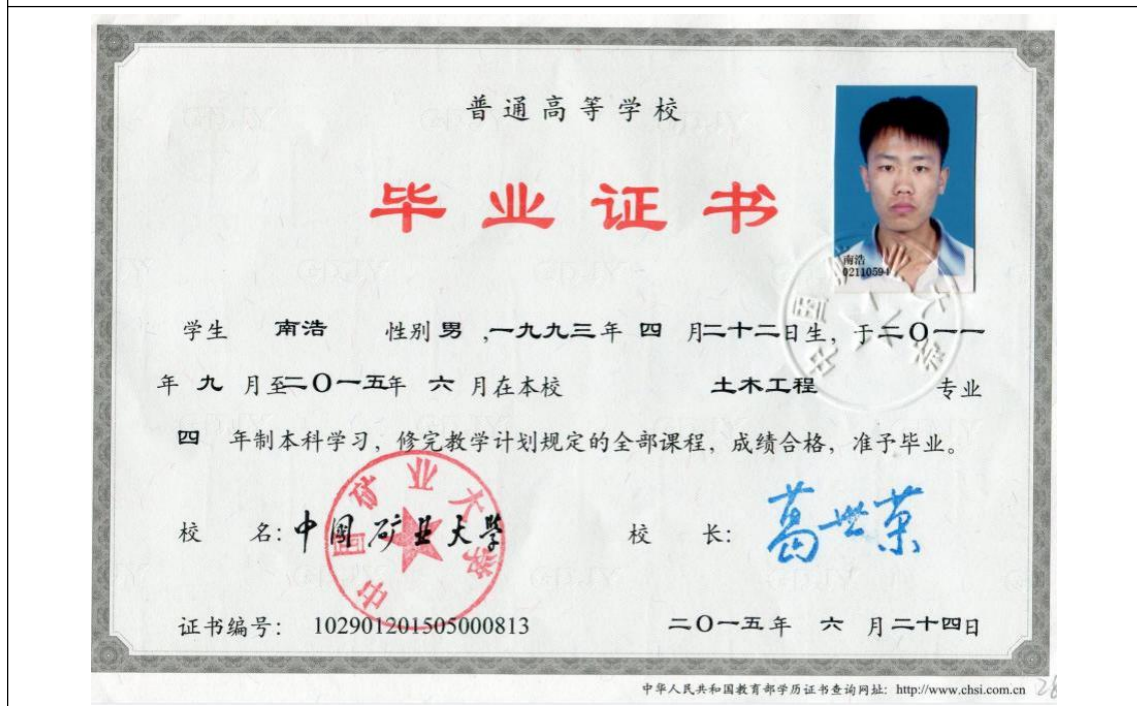 普通高等学校
毕业证书
南浩
02110594
学生 南浩 性别 男 ,一九九三年 四 月二十二日生, 于二〇一一
年 九 月至二〇一五年 六 月在本校 土木工程 专业
四 年制本科学习, 修完教学计划规定的全部课程, 成绩合格, 准予毕业。
校 名: 中国矿业大学 校 长: 葛世荣
中国矿业大学
证书编号: 102901201505000813 二〇一五年 六 月二十四日
中华人民共和国教育部学历证书查询网址: http://www.chsi.com.cn